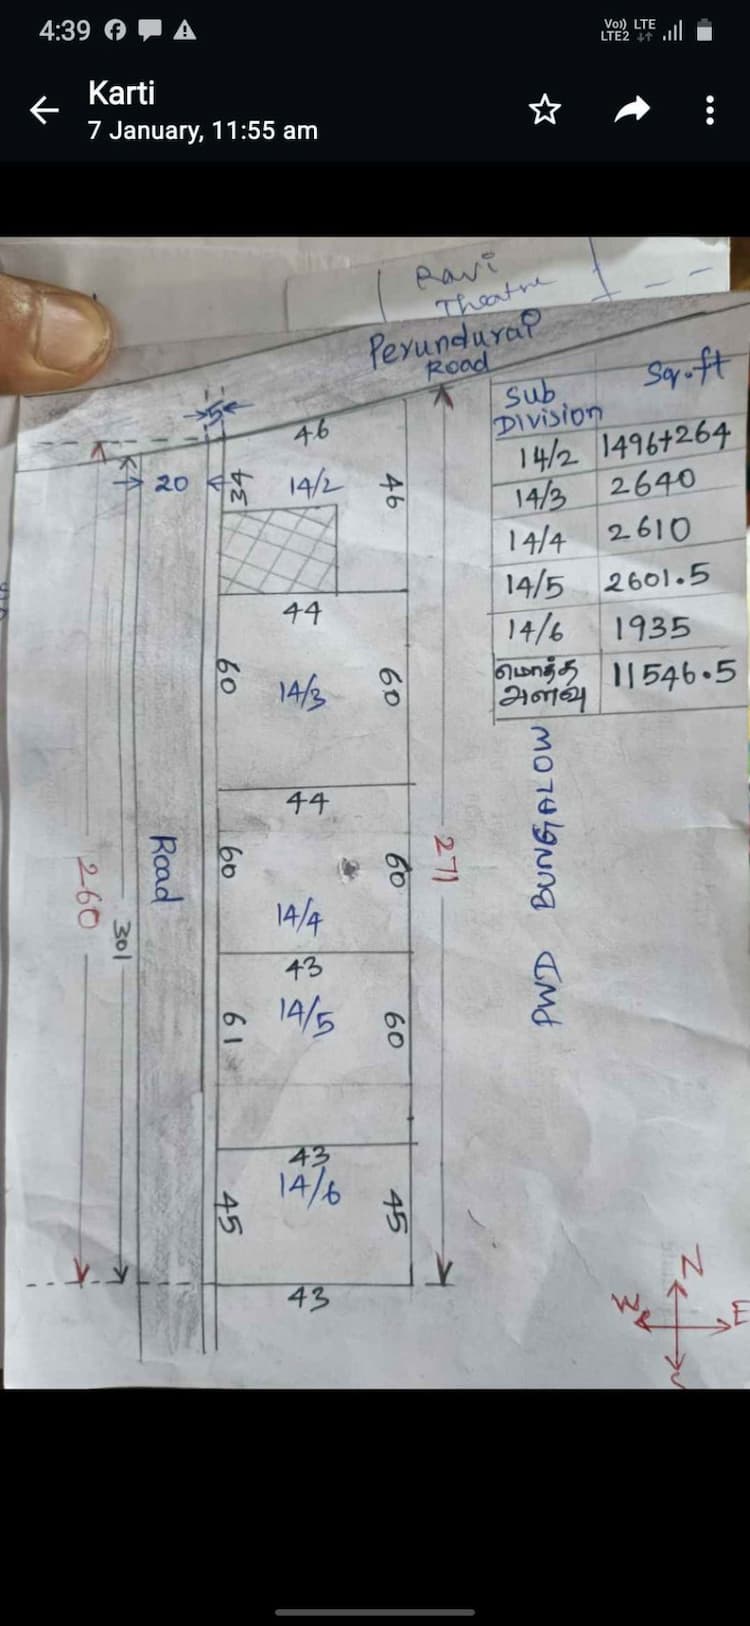 4:39
Vo)) LTE
LTE2
Karti
7 January, 11:55 am
Ravi
Theatre
Perundurai
Road
Sub
Division
Sq.ft
14/2 1496+264
14/3 2640
14/4 2610
14/5 2601.5
14/6 1935
மொத்த
அளவு 11546.5
5
46
20
34
14/2
46
44
60
14/3
60
44
60
60
14/4
43
61
14/5
60
43
14/6
45
45
43
271
260
301
Road
PWD BUNGALOW
N
W
E
S